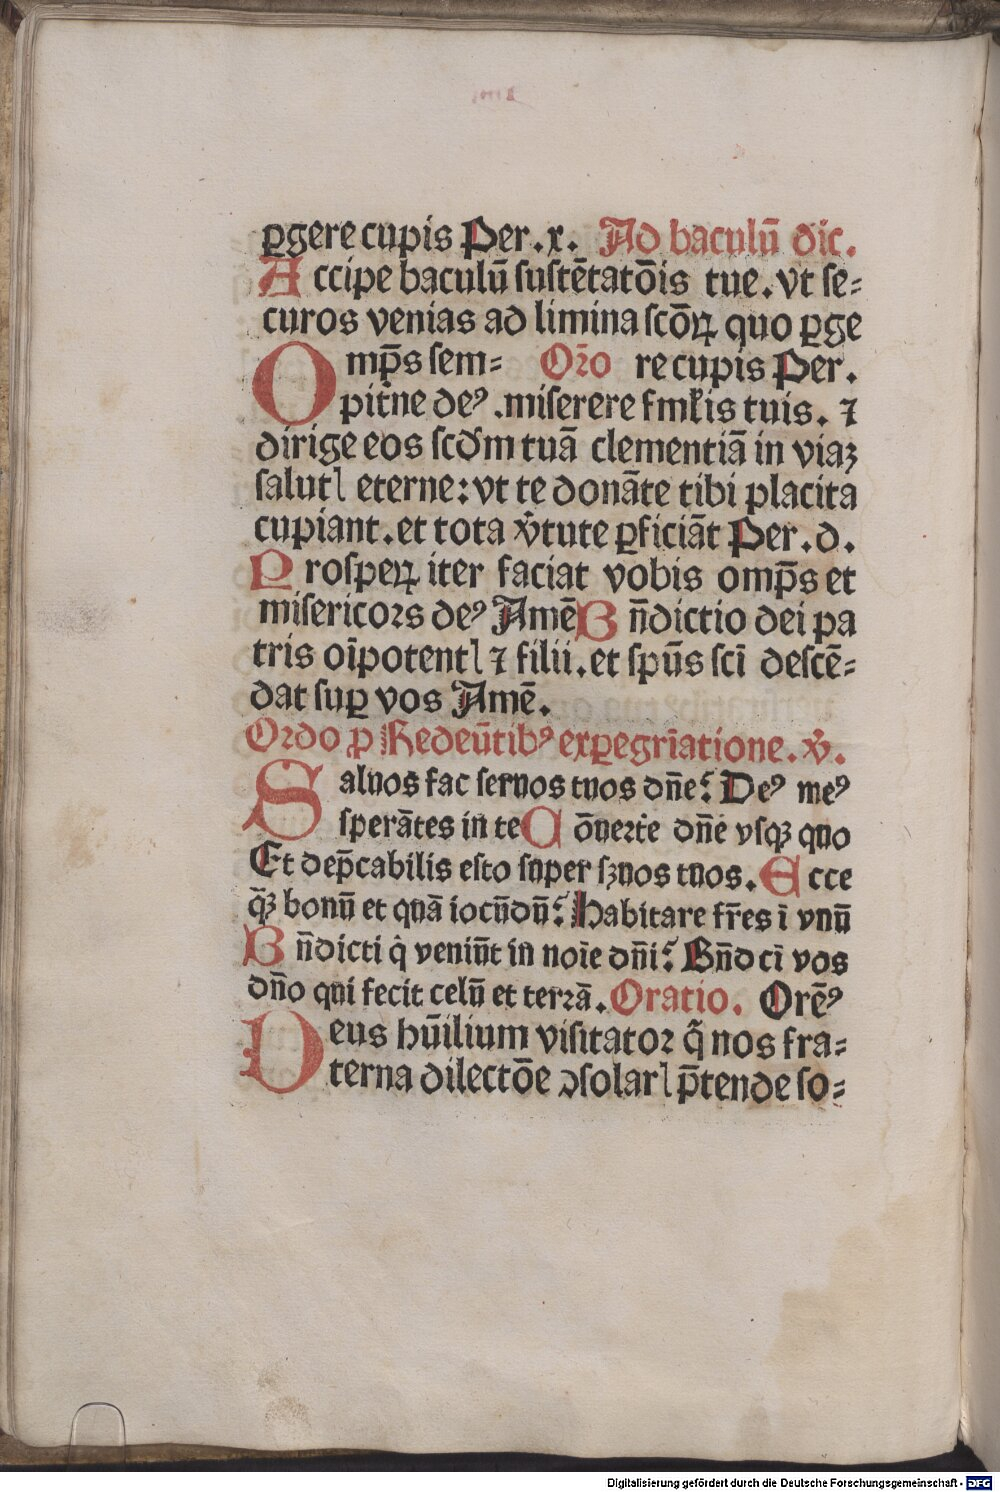 ꝑgere cupis Per.x. Ad baculū dic.
Accipe baculū ſuſtētatōis tue. vt ſe⸗
curos venias ad limina ſcōꝝ quo ꝑge
Omp̄s ſem⸗ Or̄o re cupis Per.
pit̄ne deꝰ. miſerere fml̄is tuis. ⁊
dirige eos ſcd̄m tuā clementiā in viaꝫ
ſalutꝭ eterne: vt te donāte tibi placita
cupiant. et tota v̄tute ꝑficiāt Per.d.
Proſpeꝝ iter faciat vobis omp̄s et
miſericors deꝰ Amē Bn̄dictio dei pa
tris oīpotentꝭ ⁊ filii. et ſpūs ſcī deſcē⸗
dat ſuꝑ vos Amē.
Ordo ꝓ Redeūtibꝰ exꝑegr̄iatione. v̄.
Saluos fac ſeruos tuos dn̄e: Deꝰ meꝰ
ſperātes in te Cōuerte dn̄e vſqꝫ quo
Et dep̄cabilis eſto ſuper ſꝫuos tuos. Ecce
q̄ꝫ bonū et quā iocūdū: Habitare fr̄es ī vnū
Bn̄dicti q̄ veniūt in noīe dn̄i: Bn̄dcī vos
dn̄o qui fecit celū et terrā. Oratio. Orēꝰ
Deus hūilium viſitator q̄ nos fra⸗
terna dilectōe ↄſolarꝭ p̄tende ſo⸗
Digitalisierung gefördert durch die Deutsche Forschungsgemeinschaft - DFG